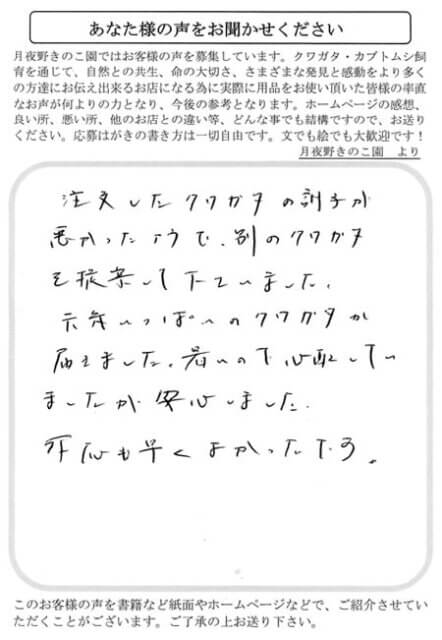 あなた様の声をお聞かせください
月夜野きのこ園ではお客様の声を募集しています。クワガタ・カブトムシ飼
育を通じて、自然との共生、命の大切さ、さまざまな発見と感動をより多く
の方達にお伝え出来るお店になる為に実際に用品をお使い頂いた皆様の率直
なお声が何よりの力となり、今後の参考となります。ホームページの感想、
良い所、悪い所、他のお店との違い等、どんな事でも結構ですので、お送り
ください。応募はがきの書き方は一切自由です。文でも絵でも大歓迎です！
月夜野きのこ園　より
注文したクワガタの調子が
悪かったようで、別のクワガタ
を提案して下さいました。
元気いっぱいのクワガタが
届きました。暑いので心配してい
ましたが安心しました。
対応も早くよかったです。
このお客様の声を書籍など紙面やホームページなどで、ご紹介させてい
ただくことがございます。ご了承の上お送り下さい。